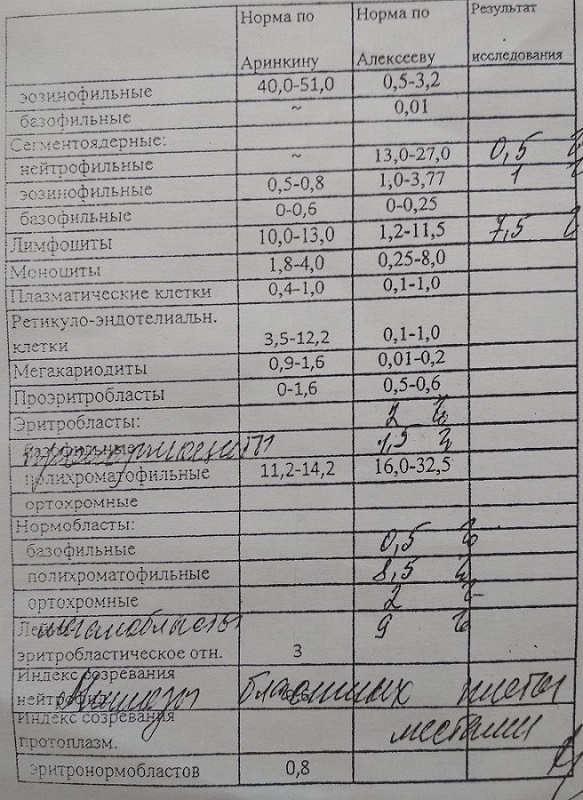 Норма по Аринкину Норма по Алексееву Результат исследования
эозинофильные 40,0-51,0 0,5-3,2
базофильные ~ 0,01
Сегментоядерные:
нейтрофильные ~ 13,0-27,0 0,5 %
эозинофильные 0,5-0,8 1,0-3,77 1 %
базофильные 0-0,6 0-0,25
Лимфоциты 10,0-13,0 1,2-11,5 7,5 %
Моноциты 1,8-4,0 0,25-8,0
Плазматические клетки 0,4-1,0 0,1-1,0
Ретикуло-эндотелиальн.
клетки 3,5-12,2 0,1-1,0
Мегакариодиты 0,9-1,6 0,01-0,2
Проэритробласты 0-1,6 0,5-0,6
Эритробласты: 2 %
базофильные
полихроматофильные 11,2-14,2 16,0-32,5
ортохромные
Нормобласты:
базофильные 0,5 %
полихроматофильные 8,5 %
ортохромные 2 %
мегалобласты 9 %
эритробластическое отн. 3
Индекс созревания
бластных клеток
Индекс созревания местами
протоплазм.
эритронормобластов 0,8